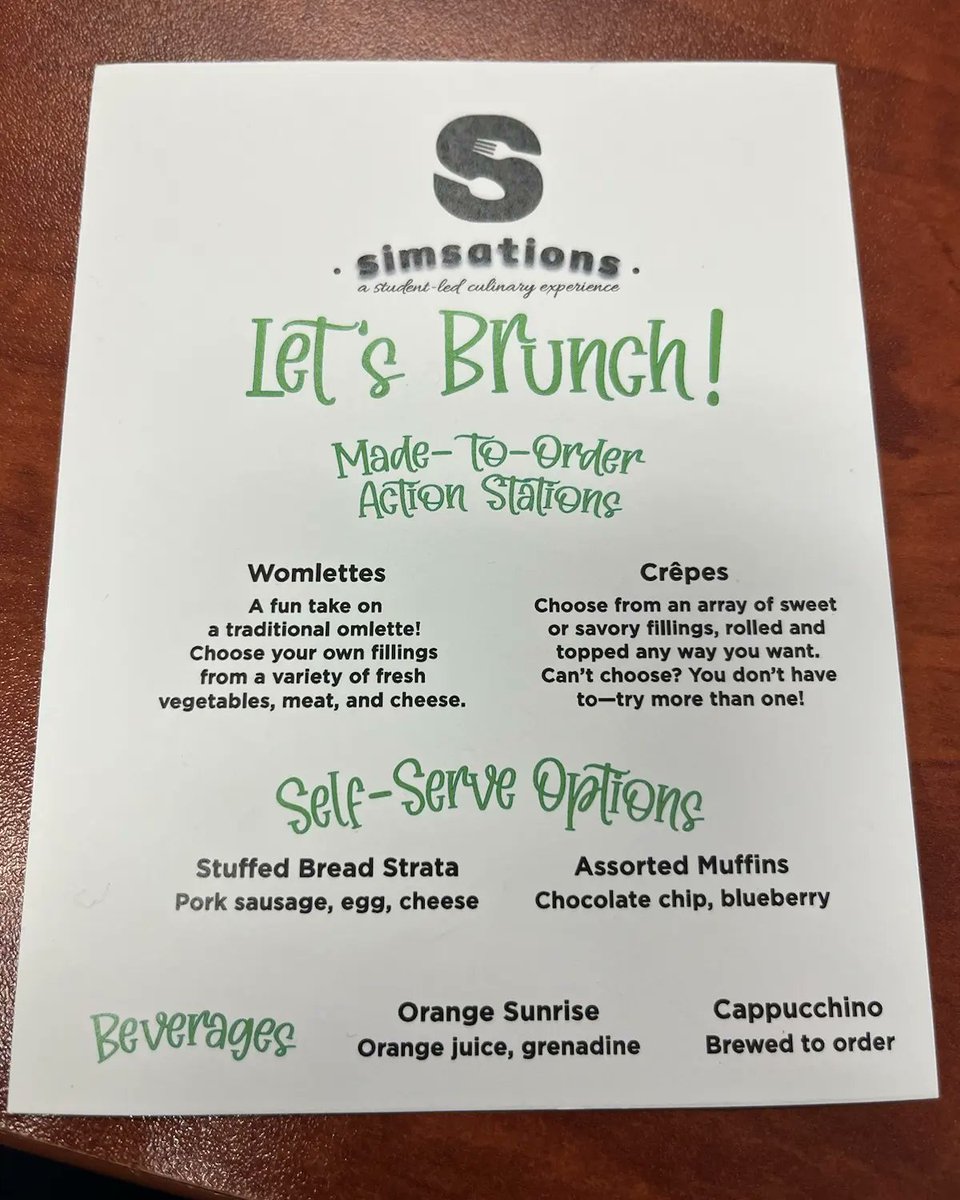 S
simsations
a student-led culinary experience
Let's Brunch!
Made-To-Order
Action Stations
Womlettes
A fun take on
a traditional omlette!
Choose your own fillings
from a variety of fresh
vegetables, meat, and cheese.
Crêpes
Choose from an array of sweet
or savory fillings, rolled and
topped any way you want.
Can't choose? You don't have
to—try more than one!
Self-Serve Options
Stuffed Bread Strata
Pork sausage, egg, cheese
Assorted Muffins
Chocolate chip, blueberry
Beverages
Orange Sunrise
Orange juice, grenadine
Cappucchino
Brewed to order